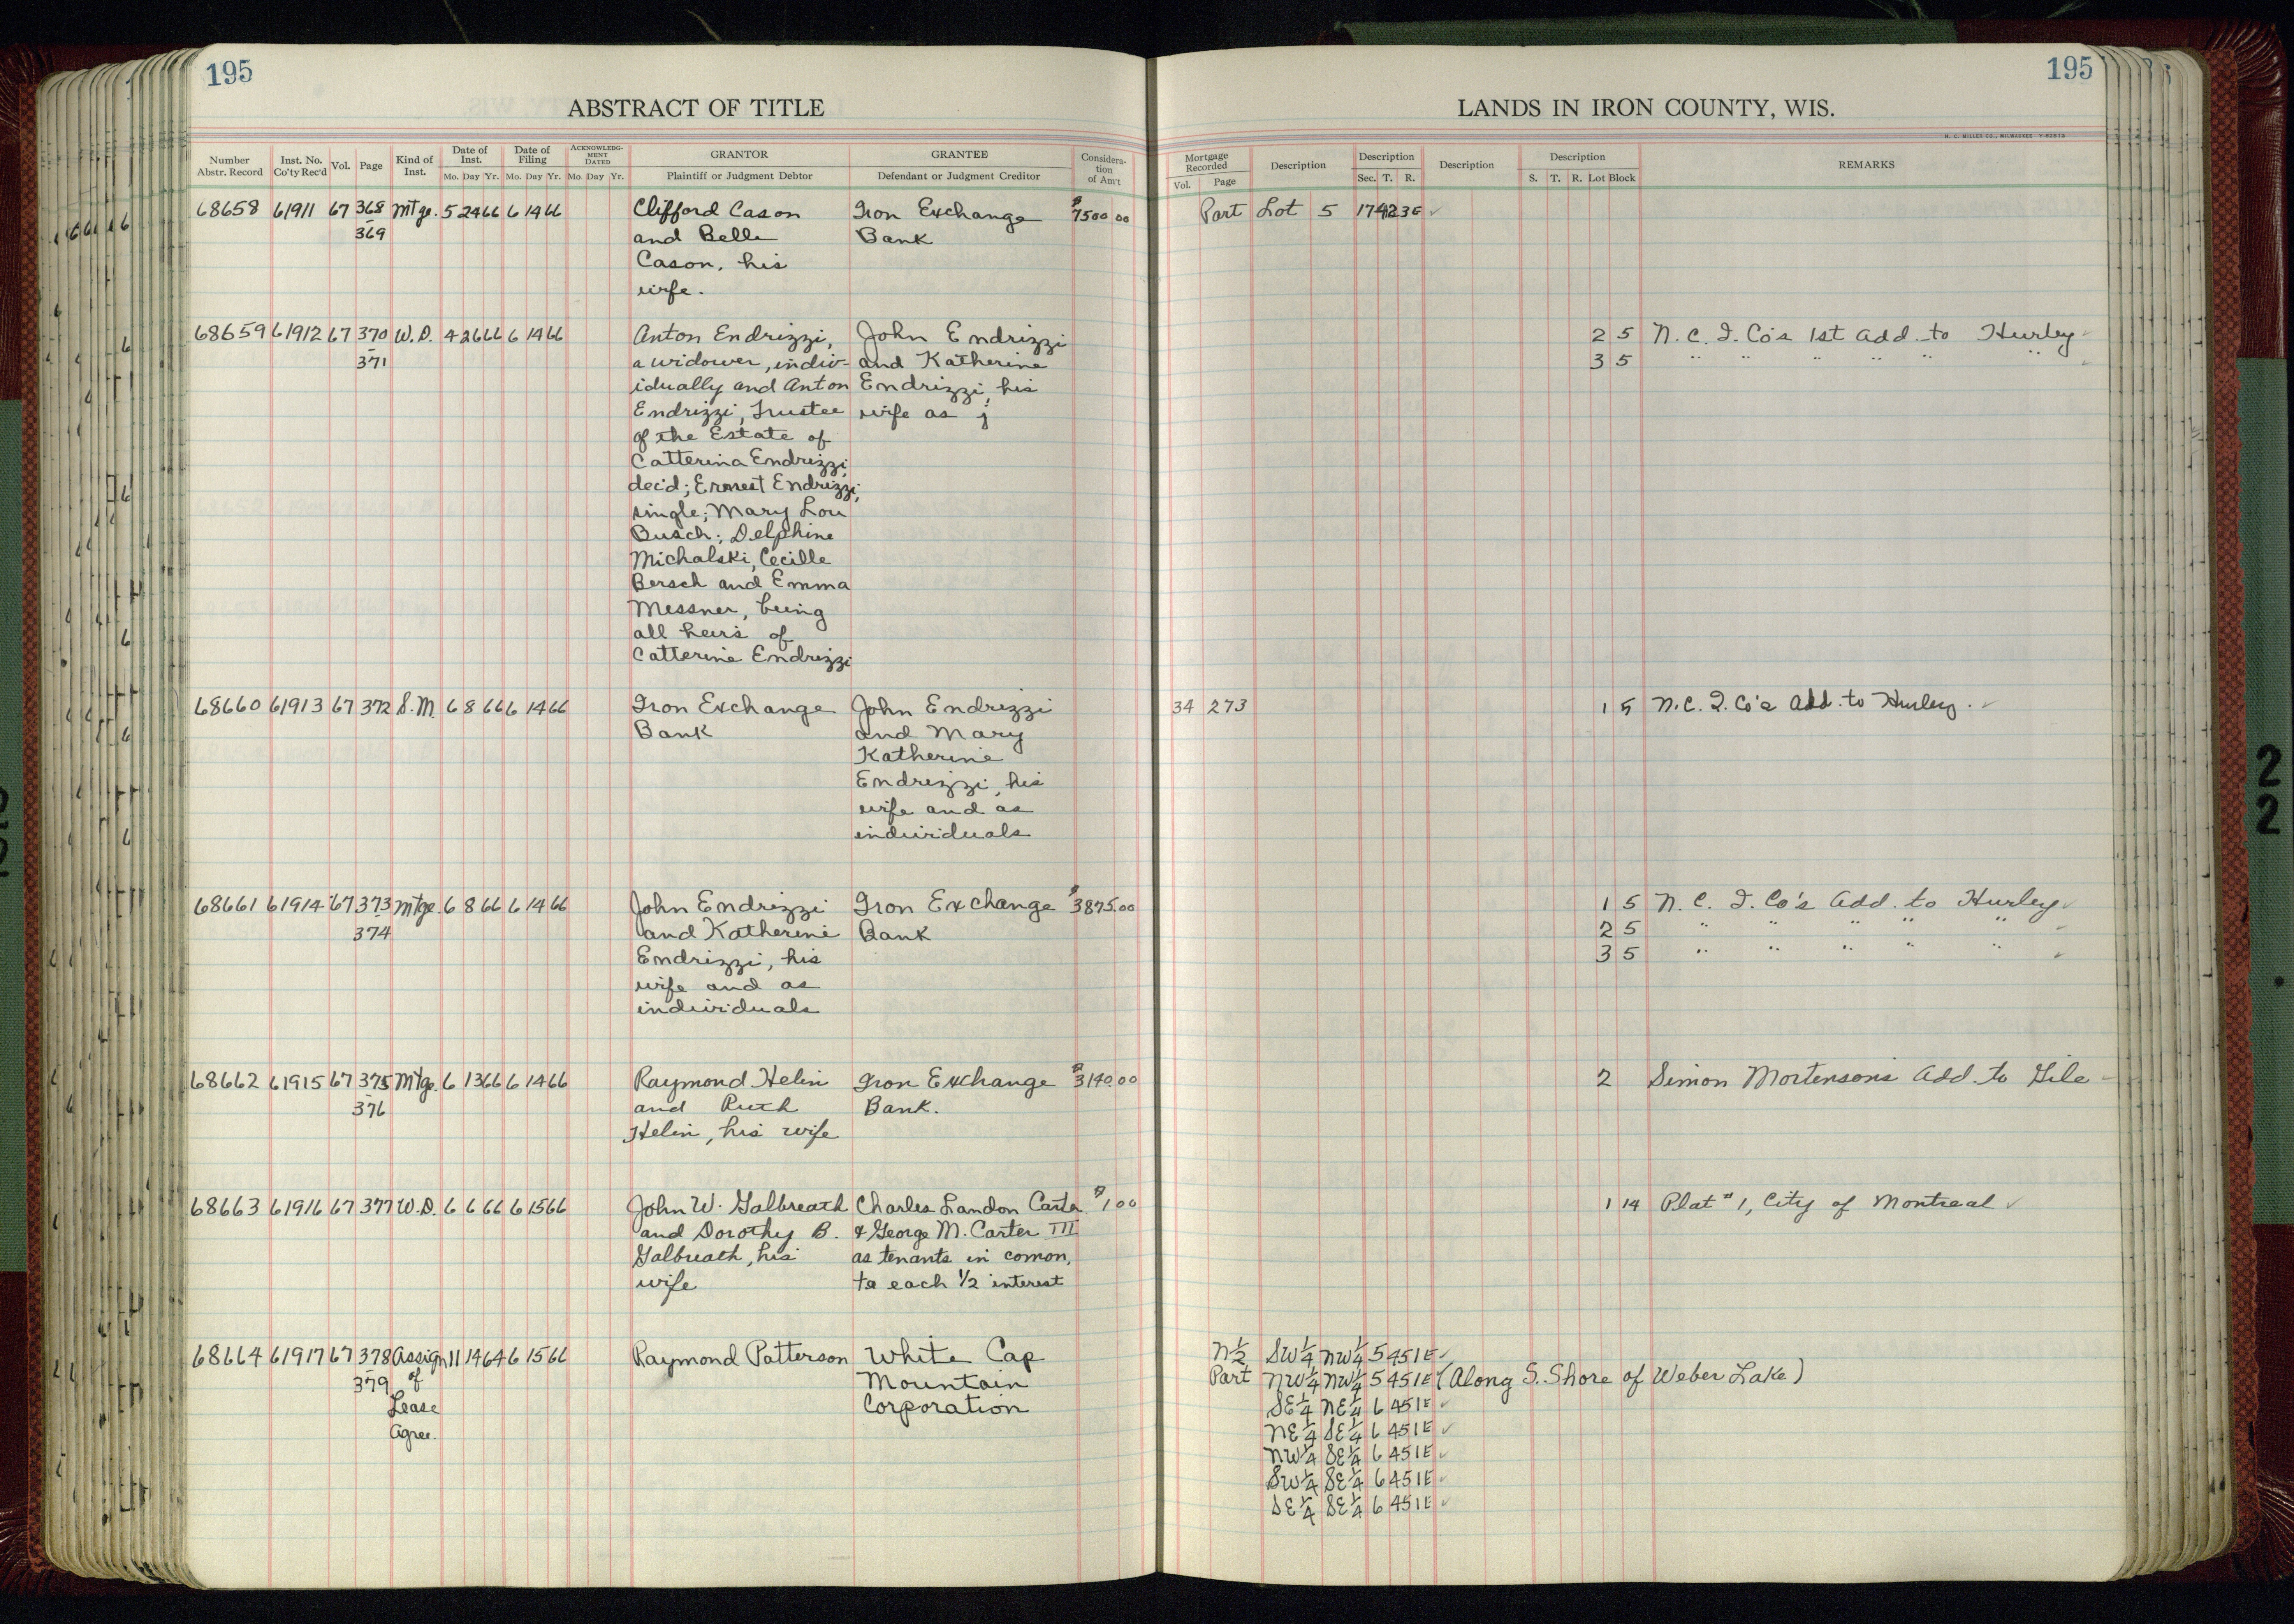 195
195
ABSTRACT OF TITLE
LANDS IN IRON COUNTY, WIS.
H. C. MILLER CO., MILWAUKEE
Number Abstr. Record
Inst. No. Co'ty Rec'd
Vol.
Page
Kind of Inst.
Date of Inst.
Mo. Day Yr.
Date of Filing
Mo. Day Yr.
ACKNOWLEDGMENT DATED
Mo. Day Yr.
GRANTOR
Plaintiff or Judgment Debtor
GRANTEE
Defendant or Judgment Creditor
Consideration of Am't
Mortgage Recorded
Vol. Page
Description
Description
Sec. T. R.
Description
Description
S. T. R. Lot Block
REMARKS
68658 61911 67 368 Mtge. 5 24 66 6 14 66 Clifford Cason Iron Exchange $7500 00 Part Lot 5 17 42 3E ✓
- 369 and Belle Bank
Cason, his
wife.
68659 61912 67 370 W.D. 4 26 66 6 14 66 Anton Endrizzi, John Endrizzi 2 5 N. C. I. Co's 1st Add. to Hurley ✓
- 371 a widower, indiv- and Katherine 3 5 " " " " " " ✓
idually and Anton Endrizzi, his
Endrizzi, Trustee wife as j
of the Estate of
Catterina Endrizzi,
dec'd; Ernest Endrizzi,
single; Mary Lou
Busch; Delphine
Michalski, Cecille
Bersch and Emma
Messner, being
all heirs of
Catterine Endrizzi
68660 61913 67 372 S.M. 6 8 66 6 14 66 Iron Exchange John Endrizzi 34 273 1 5 N.C. I. Co's Add. to Hurley. ✓
Bank and Mary
Katherine
Endrizzi, his
wife and as
individuals
68661 61914 67 373 Mtge. 6 8 66 6 14 66 John Endrizzi Iron Exchange $3875.00 1 5 N. C. I. Co's Add. to Hurley ✓
- 374 and Katherine Bank 2 5 " " " " " ✓
Endrizzi, his 3 5 " " " " " ✓
wife and as
individuals
68662 61915 67 375 Mtge. 6 13 66 6 14 66 Raymond Helin Iron Exchange $3140.00 2 Simon Mortensons Add. to Gile
- 376 and Ruth Bank.
Helin, his wife
68663 61916 67 377 W.D. 6 6 66 6 15 66 John W. Galbreath Charles Landon Carter $1 00 1 14 Plat #1, City of Montreal ✓
and Dorothy B. & George M. Carter III
Galbreath, his as tenants in comon,
wife to each 1/2 interest
68664 61917 67 378 Assign 11 14 64 6 15 66 Raymond Patterson White Cap N 1/2 SW 1/4 NW 1/4 5 45 1E ✓
- 379 of Mountain Part NW 1/4 NW 1/4 5 45 1E (Along S. Shore of Weber Lake)
Lease Corporation SE 1/4 NE 1/4 6 45 1E ✓
Agree. NE 1/4 SE 1/4 6 45 1E ✓
NW 1/4 SE 1/4 6 45 1E ✓
SW 1/4 SE 1/4 6 45 1E ✓
SE 1/4 SE 1/4 6 45 1E ✓
2
2